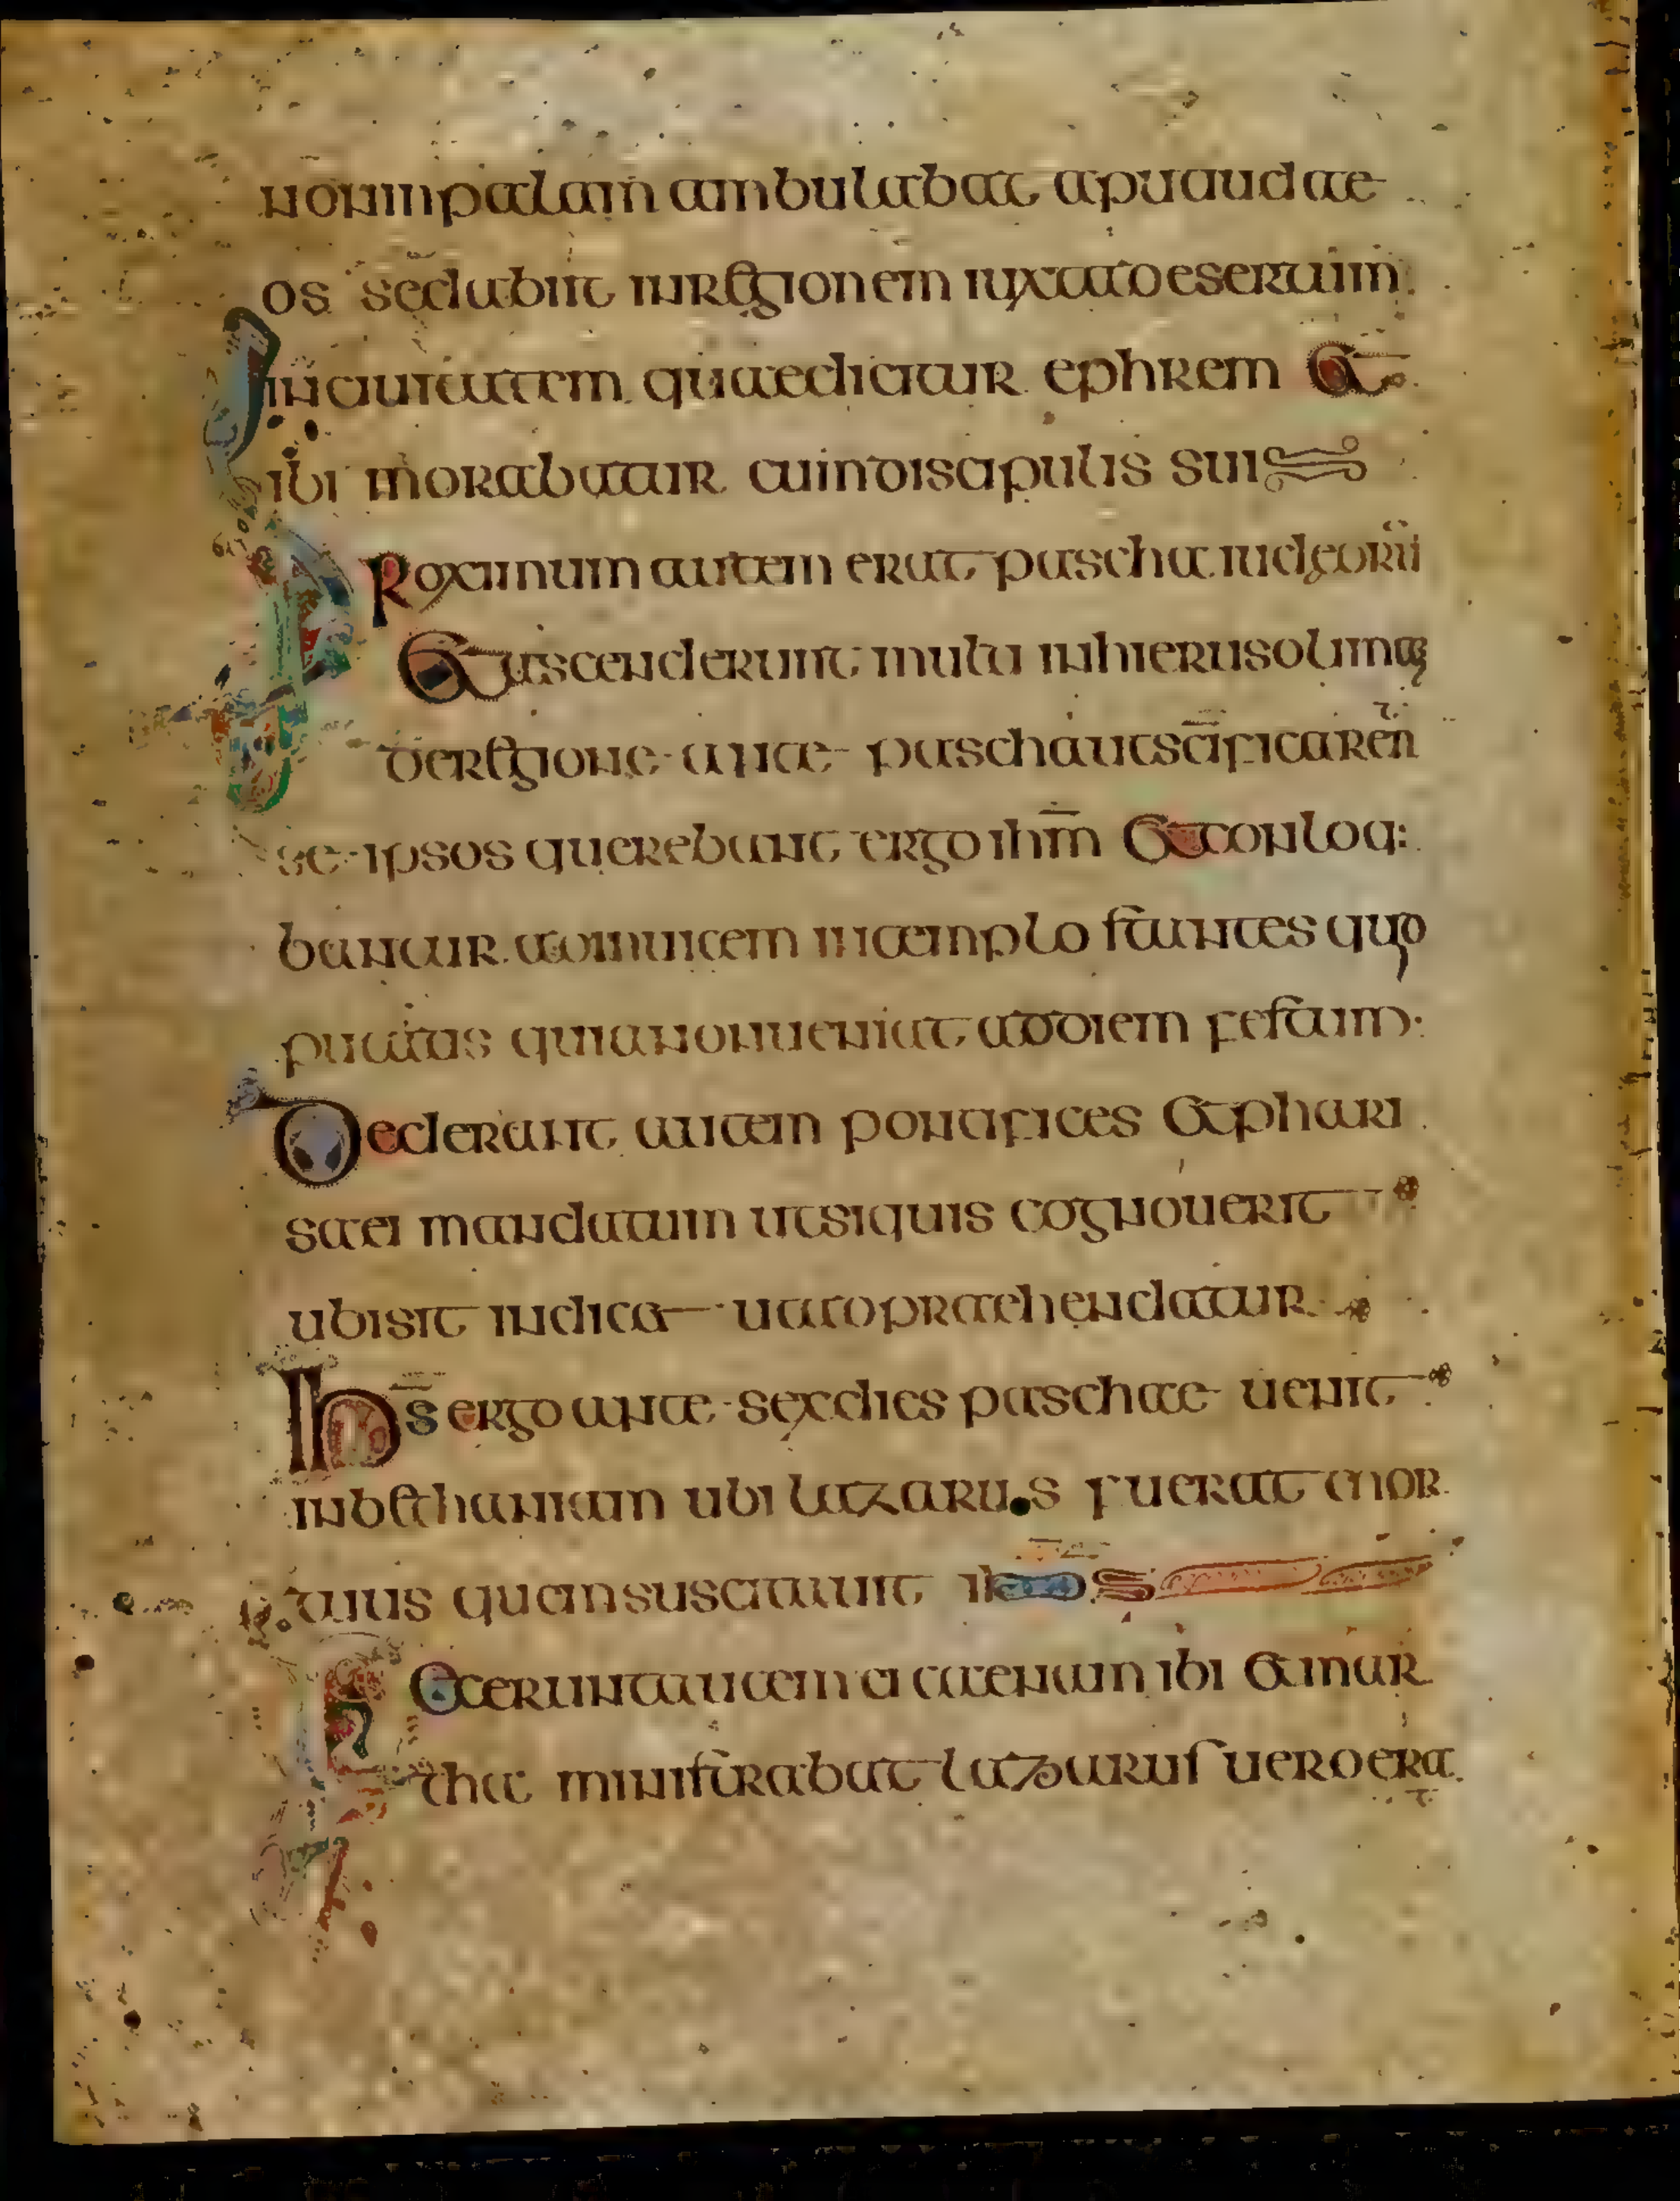 noninpalam ambulabat apudiudae
os sedabiit inregionem iuxtadesertum
Inciuitatem quaedicitur ephrem Et
ibi morabatur cumdiscipulis suis
Proximum autem erat pascha iudeorū
Etascenderunt multi inhierusolima
deregione ante pascha utsc̄ificaren̄t
se ipsos querebant ergo ihm̄ Etconloq:
bantur adinuicem intemplo stantes quo
putatis quianonueniat addiem festum
Dederant autem pontifices Etphari
saei mandatum utsiquis cognouerit
ubisit indicet utadpraehendatur
Ihs̄ ergo ante sexdies paschae uenit
inbethaniam ubi lazarus fuerat mor
tuus quemsuscitauit ihs̄
Feceruntautem ei caenam ibi Etmar
tha ministrabat lazarus uero erat